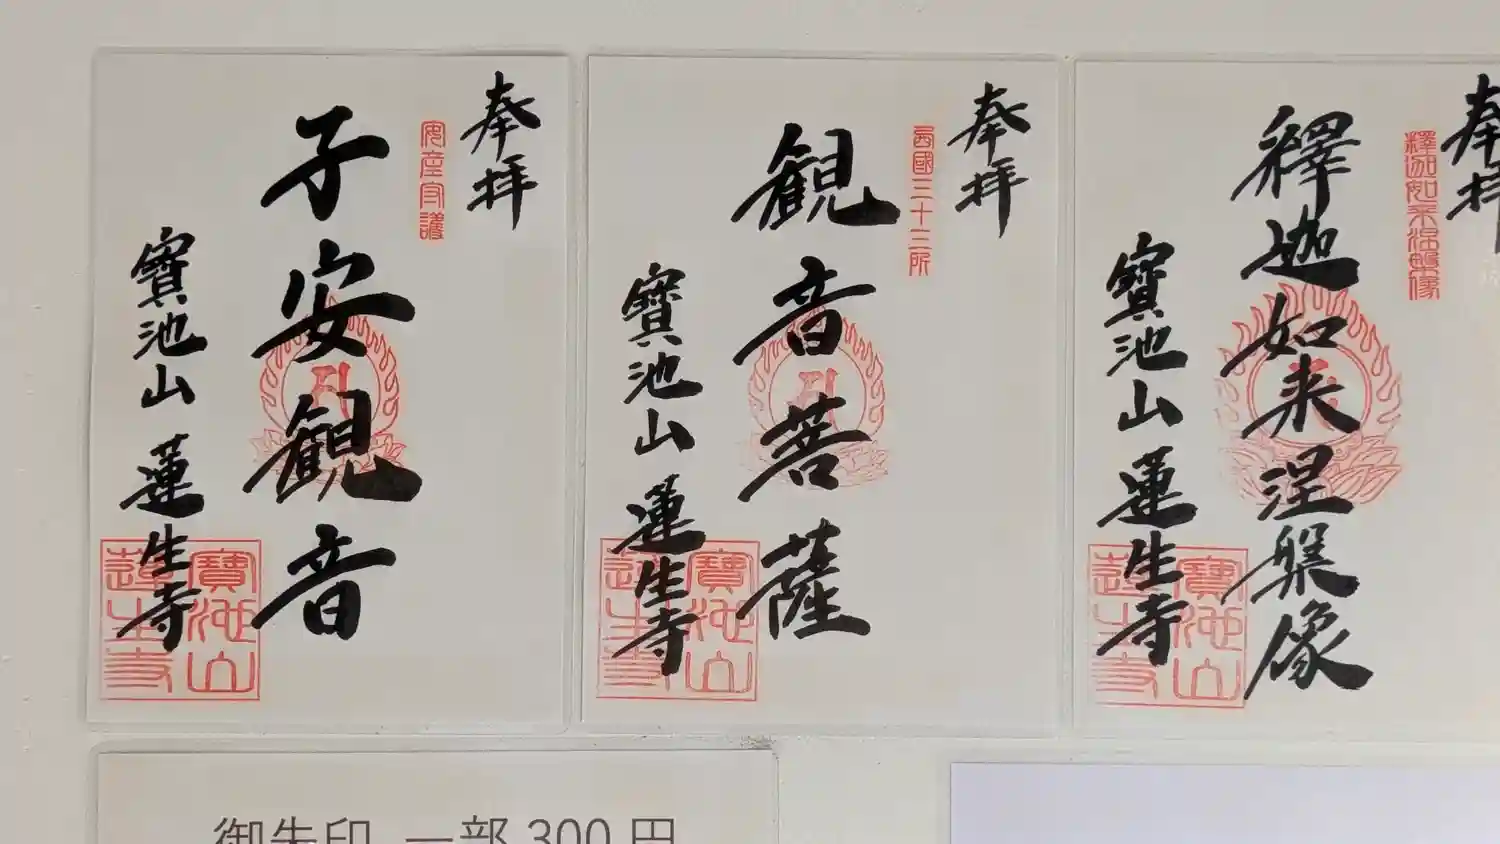 奉拝
安産守護
子安観音
寳池山 蓮生寺
寳池山
蓮生寺
奉拝
西國三十三所
観音菩薩
寳池山 蓮生寺
寳池山
蓮生寺
奉拝
釋迦如来涅槃像
釋迦如来涅槃像
寳池山 蓮生寺
寳池山
蓮生寺
御朱印 一部 300 円